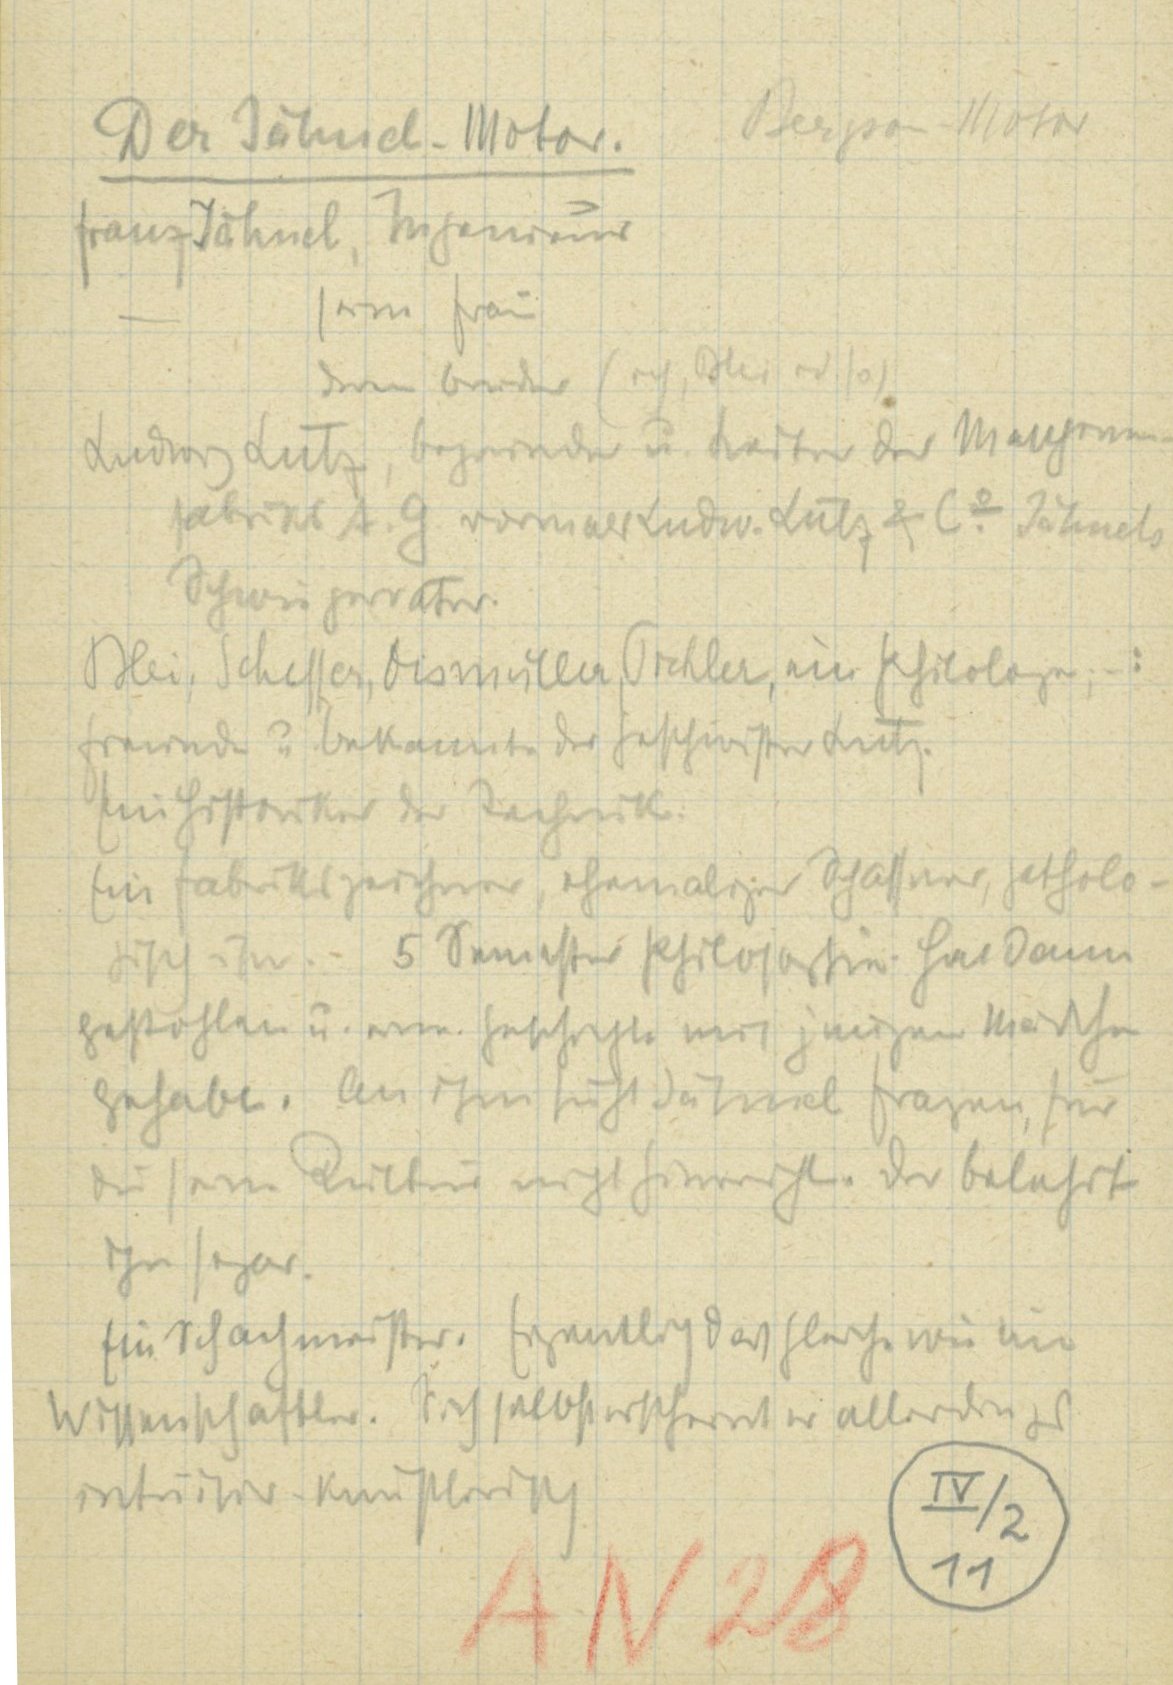 Der Jähnel-Motor. Bergson-Motor
Franz Jähnel, Ingenieur
— seine Frau
deren Bruder (ich, Blei od. so)
Ludwig Lutz, Begründer u. Leiter der Maschinen
fabriks A. G. vormals Ludw. Lutz & Co. Jähnels
Schwiegervater.
Blei, Scheffer, Dismüller, Pichler, ein Philologe, –:
Freunde u. Bekannte der Geschwister Lutz.
Ein Historiker der Technik.
Ein Fabrikszeichner, ehemaliger Schaffner, patholo-
gisch 5 Semester Philosophie. Hat dann
gestohlen u. eine Geschichte mit jungen Mädchen
gehabt. An ihn sucht Jähnel Fragen, für
die seine nicht hinreicht. Der belehrt
ihn sogar.
Ein Schachmeister. Eigentlich das Gleiche wie ein
Wissenschaftler. Sich selbst erscheint er allerdings
intuitiv-künstlerisch
IV/2
11
AN 28